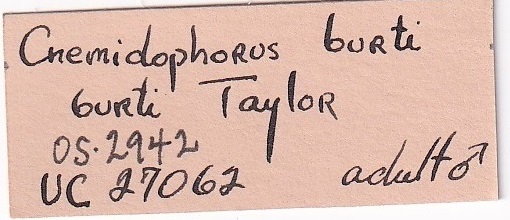 Cnemidophorus burti
burti Taylor
OS·2942
UC 27062 adult ♂